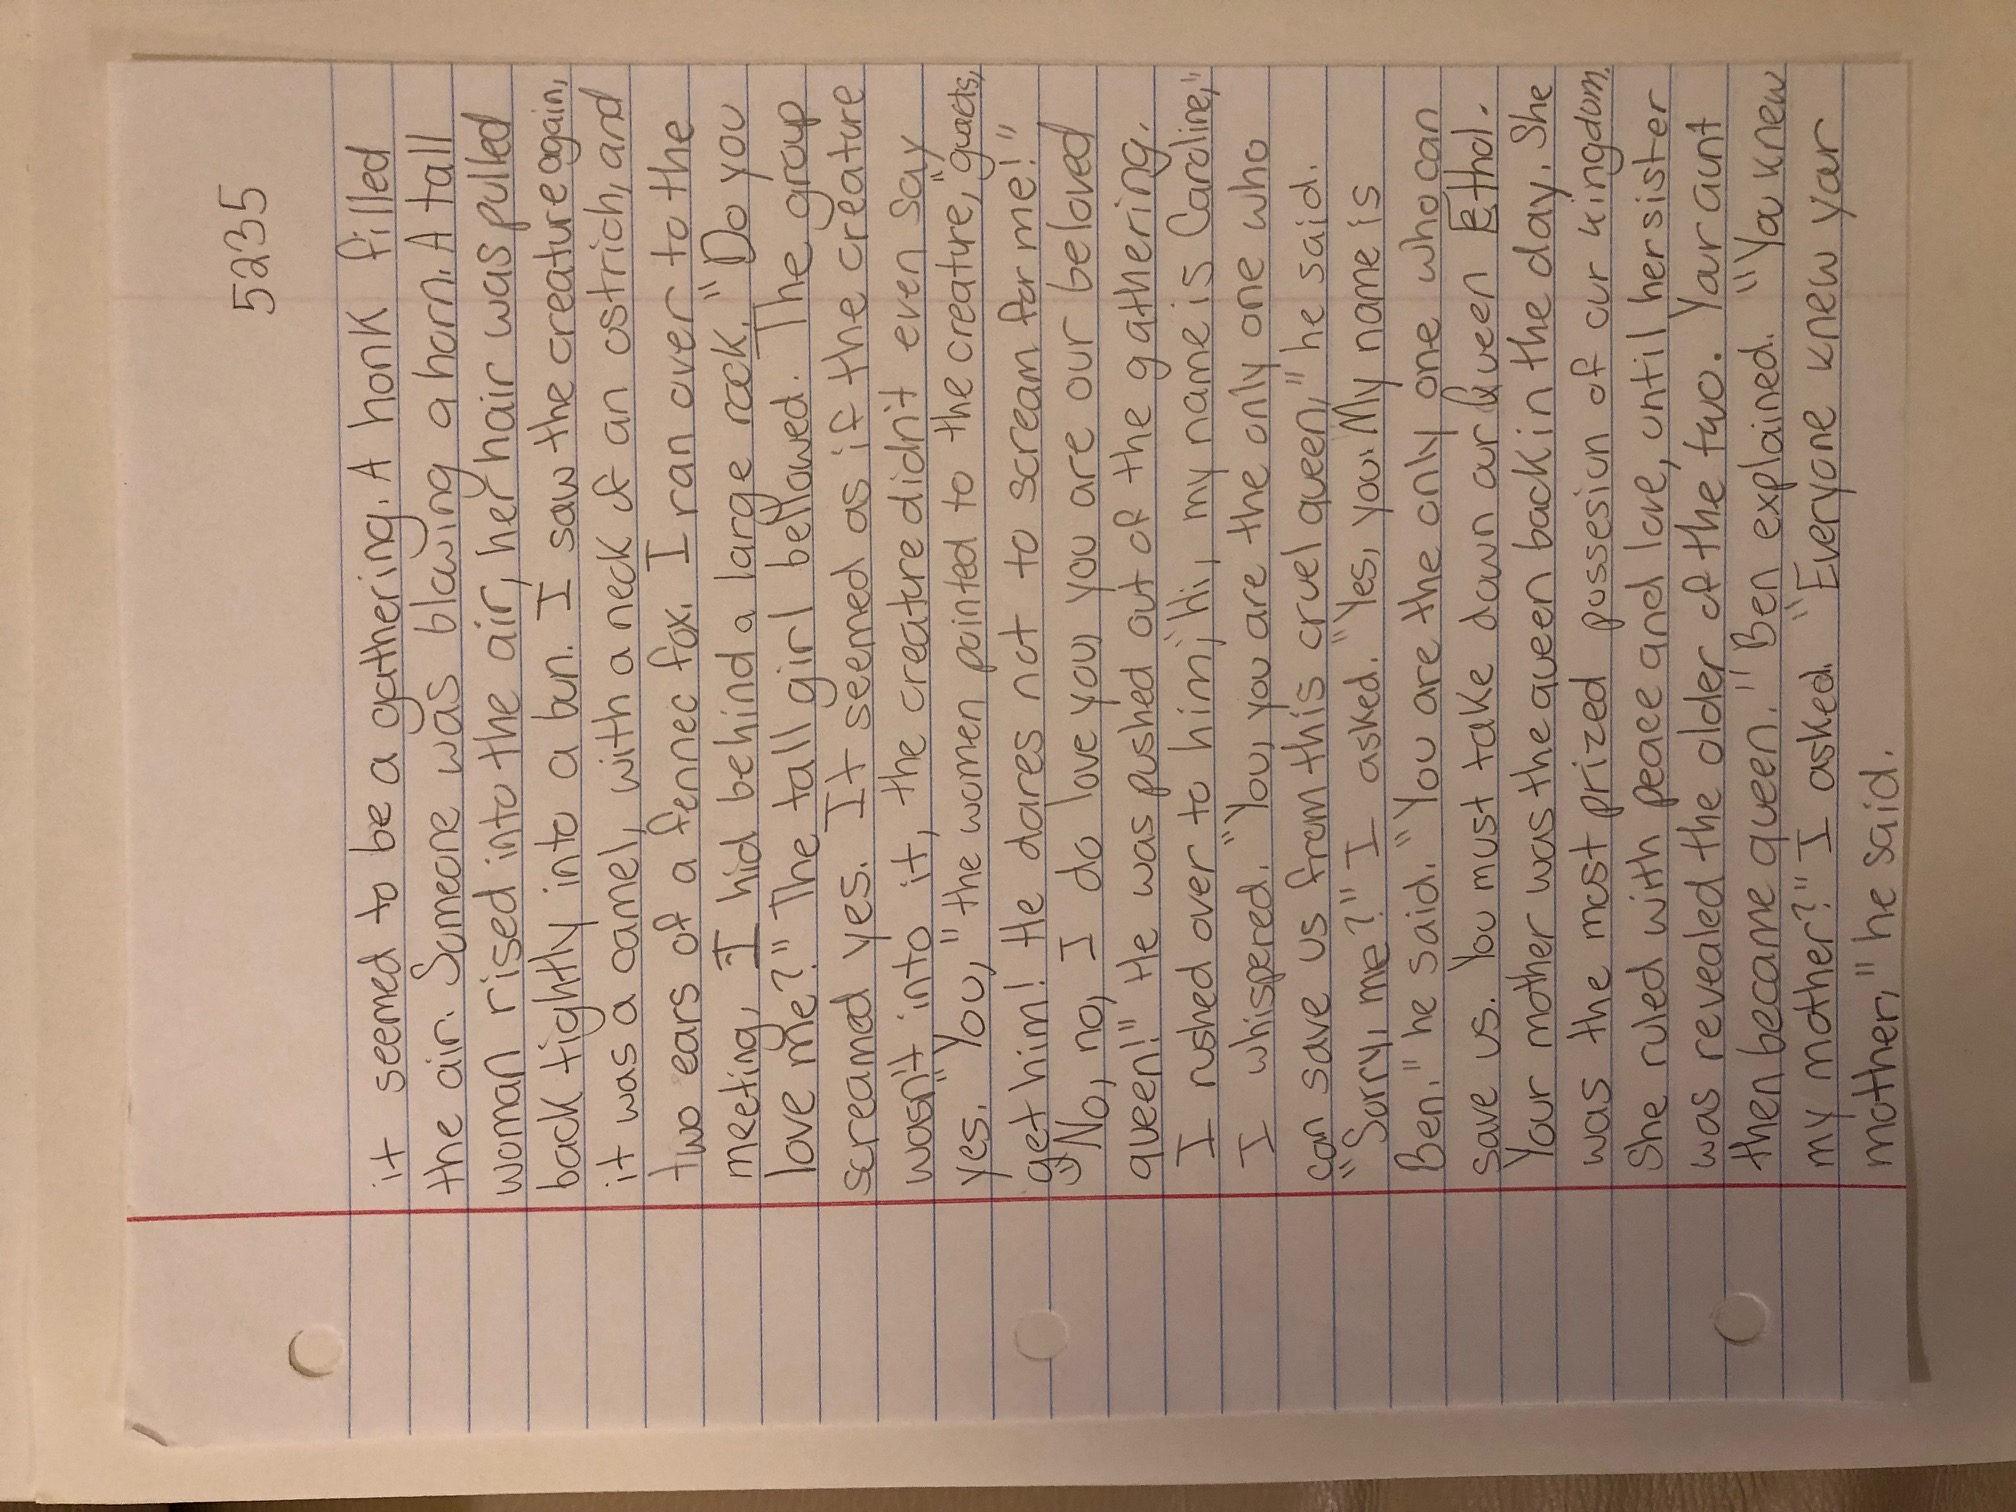 5235
it seemed to be a gathering. A honk filled
the air. Someone was blowing a horn. A tall
woman rised into the air, her hair was pulled
back tightly into a bun. I saw the creature again,
it was a camel, with a neck of an ostrich, and
two ears of a fennec fox. I ran over to the
meeting, I hid behind a large rock. "Do you
love me?" The tall girl bellowed. The group
screamed yes. It seemed as if the creature
wasn't into it, the creature didn't even say
yes. "You," the women pointed to the creature, "guards,
get him! He dares not to scream for me!"
"No, no, I do love you, you are our beloved
queen!" He was pushed out of the gathering.
I rushed over to him, "Hi, my name is Caroline,"
I whispered. "You, you are the only one who
can save us from this cruel queen," he said.
"Sorry, me?" I asked. "Yes, you. My name is
Ben." he said. "You are the only one who can
save us. You must take down our Queen Ethol.
Your mother was the queen back in the day. She
was the most prized possesion of our kingdom.
She ruled with peace and love, until her sister
was revealed the older of the two. Your aunt
then became queen." Ben explained. "You knew
my mother?" I asked. "Everyone knew your
mother," he said.